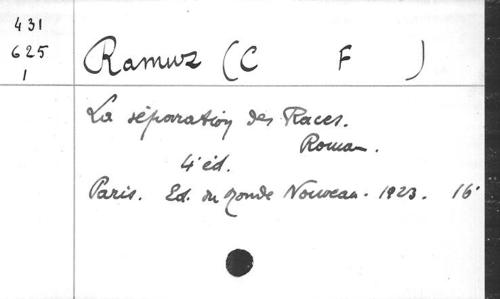 431
625
1
Ramuz (C F )
La séparation des Races.
Roman.
4e éd.
Paris. Ed. du Monde Nouveau. 1923. 16°